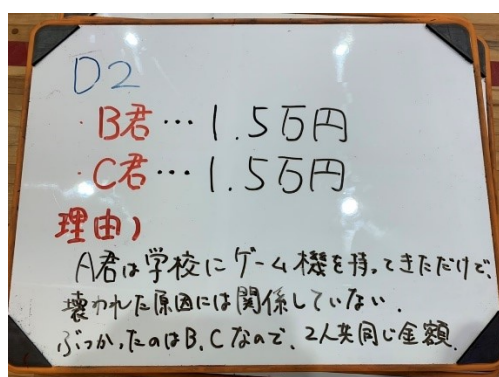 D2
・B君…1.5万円
・C君…1.5万円
理由)
A君は学校にゲーム機を持ってきただけで、
壊われた原因には関係していない.
ぶつかったのはB.Cなので、2人共同じ金額.